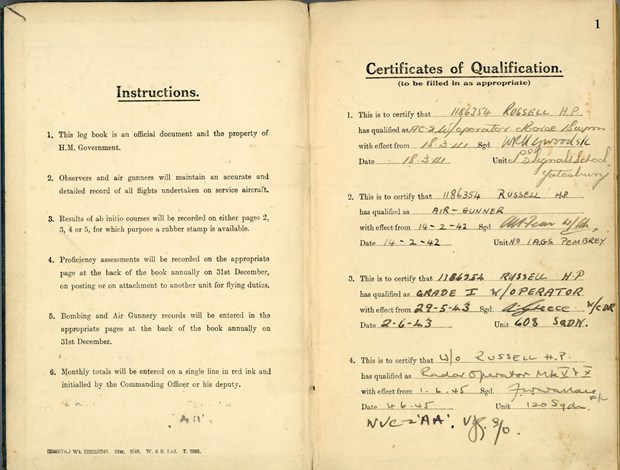 1
Instructions.
1. This log book is an official document and the property of
H.M. Government.
2. Observers and air gunners will maintain an accurate and
detailed record of all flights undertaken on service aircraft.
3. Results of ab initio courses will be recorded on either pages 2,
3, 4 or 5, for which purpose a rubber stamp is available.
4. Proficiency assessments will be recorded on the appropriate
page at the back of the book annually on 31st December,
on posting or on attachment to another unit for flying duties.
5. Bombing and Air Gunnery records will be entered in the
appropriate pages at the back of the book annually on
31st December.
6. Monthly totals will be entered on a single line in red ink and
initialled by the Commanding Officer or his deputy.
W. & S. Ltd.
Certificates of Qualification.
(to be filled in as appropriate)
1. This is to certify that 1186354 RUSSELL H.P.
has qualified as AC2 W/operator
with effect from 18.3.41 Sgd.
Date 18.3.41 Unit Signals School
Yatesbury
2. This is to certify that 1186354 RUSSELL H.P
has qualified as AIR-GUNNER
with effect from 14-2-42 Sgd.
Date 14-2-42 Unit No 1 AGS PEMBREY
3. This is to certify that 1186354 RUSSELL H.P
has qualified as GRADE I W/OPERATOR
with effect from 29-5-43 Sgd. W/CDR
Date 2-6-43 Unit 608 SQDN.
4. This is to certify that W/O RUSSELL H.P.
has qualified as Radar Operator Mk V
with effect from 1.6.45 Sgd. F/L
Date 4.6.45 Unit 120 Sqdn
NVC 2 'AA'.